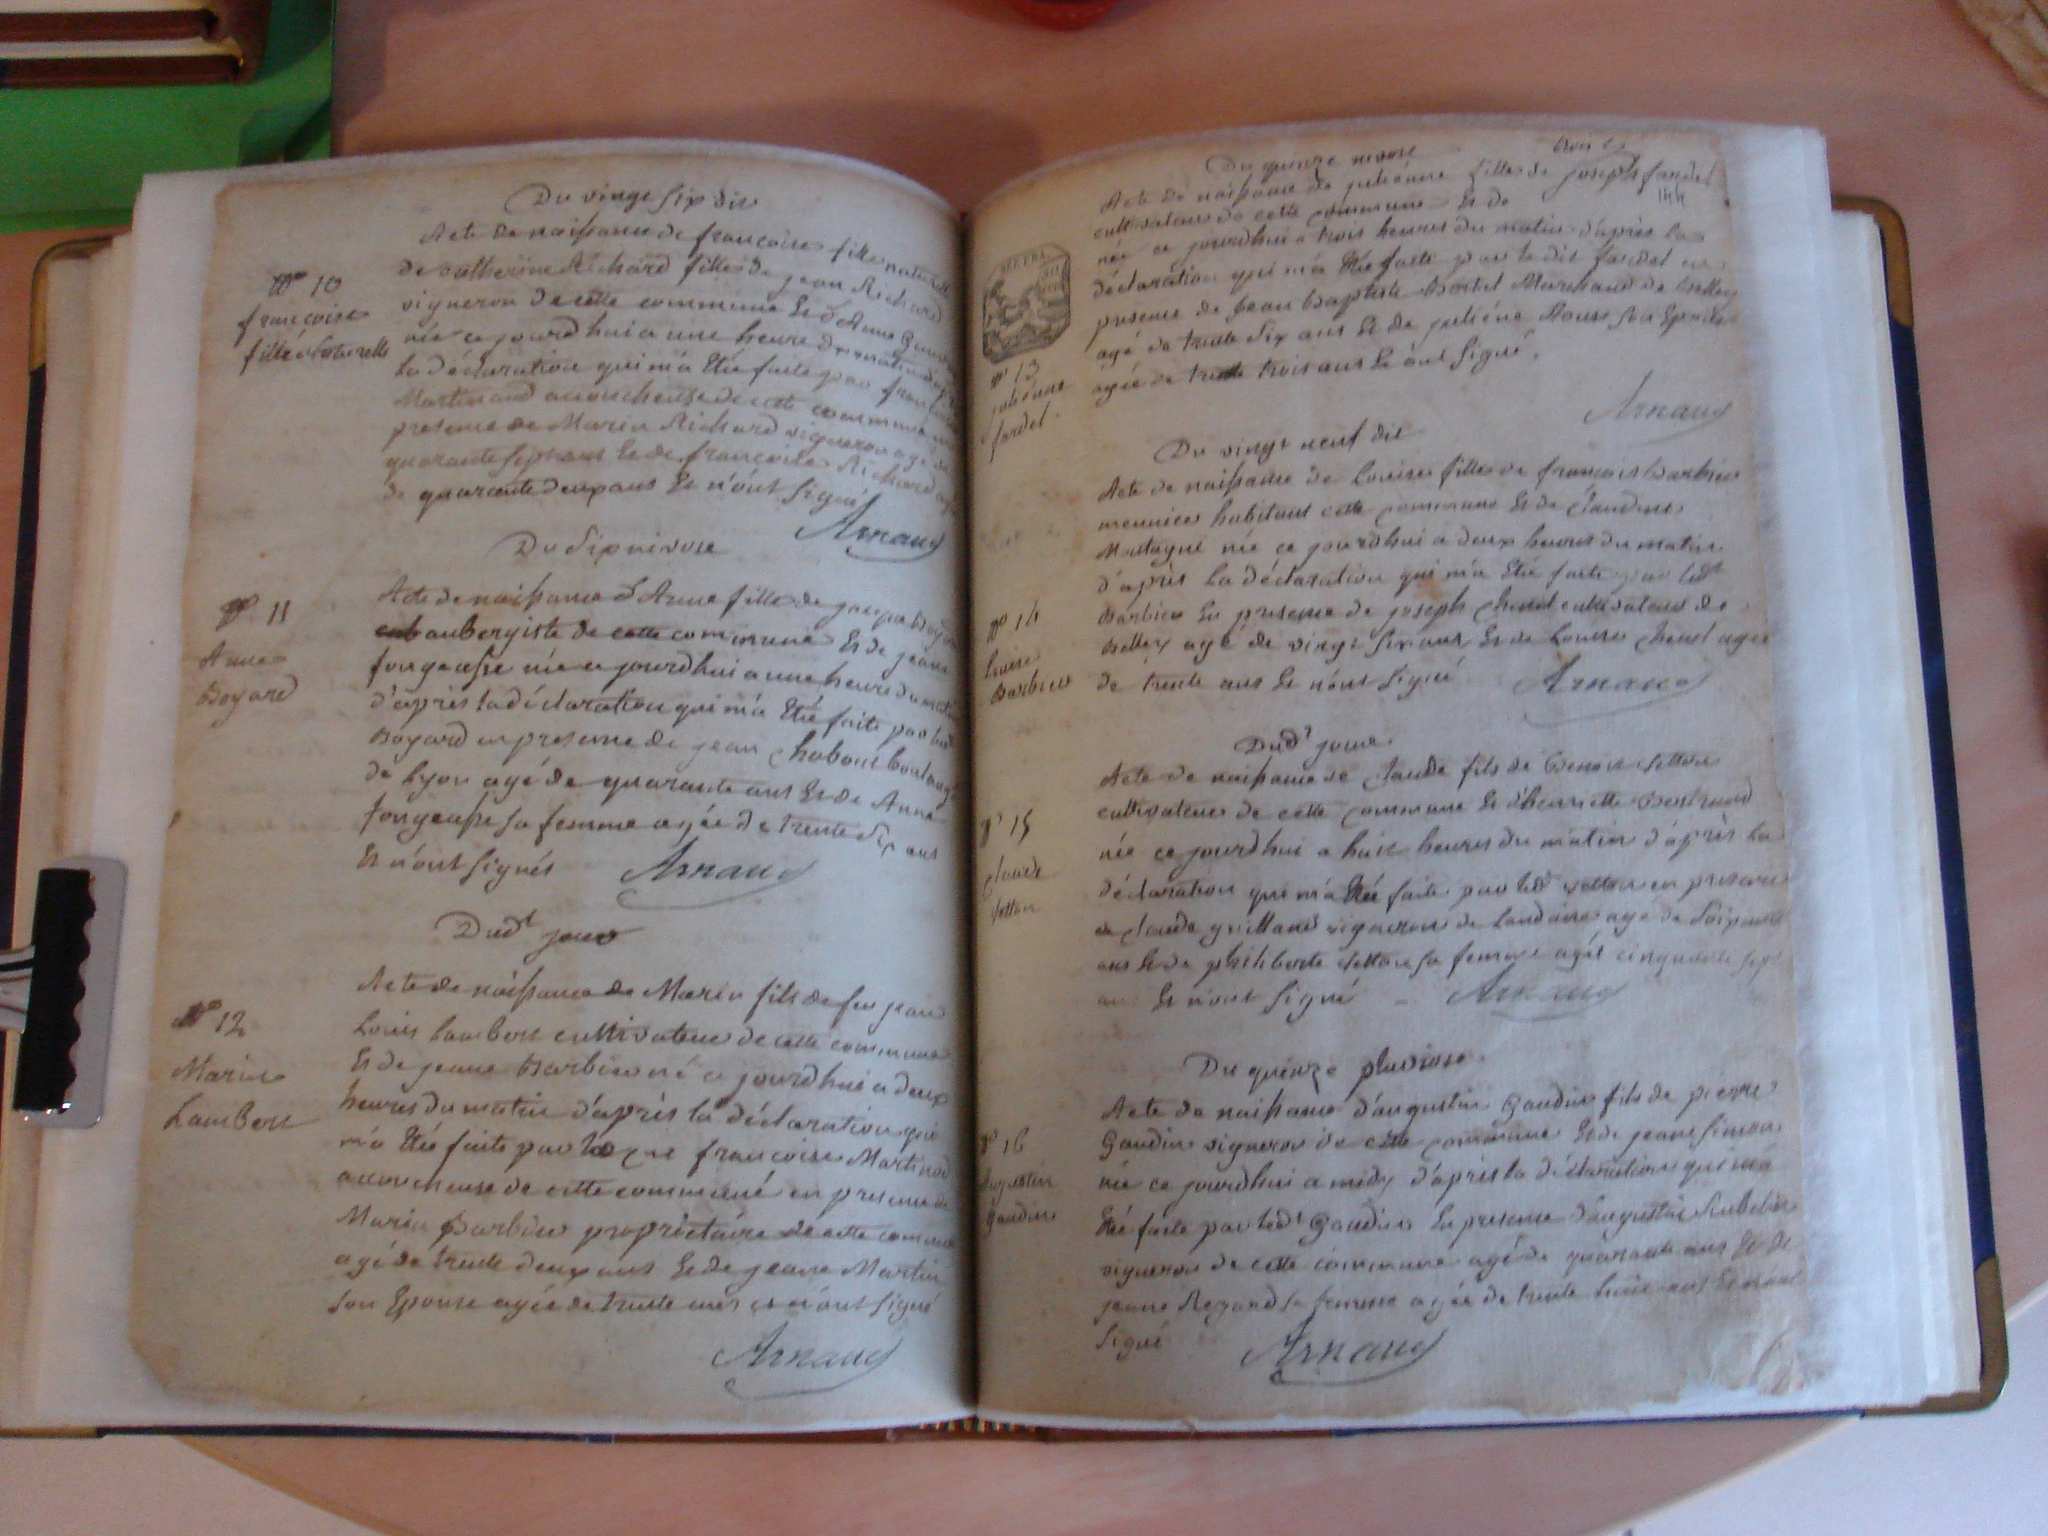 Du vingt six dit
N° 10
françoise
fille naturelle
Acte de naissance de françoise fille naturelle
de catherine Richard fille de jean Richard
vigneron de cette commune Et d'Anne
née ce jourdhui a une heure du matin
la déclaration qui m'a Eté faite par
Martinand accoucheuse de cette commune
presence de Marin Richard vigneron agé de
quarante sept ans Et de françoise Richard
de quarante deux ans Et n'ont signé
Arnaud
Du six nivose
N° 11
Anne
Boyard
Acte de naissance d'Anne fille de
aubergiste de cette commune Et de jeane
fongeasse née ce jourdhui a une heure du matin
d'après la déclaration qui m'a Eté faite par
Boyard en presence de jean
de Lyon agé de quarante ans Et de Anne
fongeasse sa femme agée de trente six ans
Et n'ont signés Arnaud
Dudt jour
N° 12
Marin
Lambert
Acte de naissance de Marin fils de feu jean
Louis Lambert cultivateur de cette commune
Et de jeane Barbier né ce jourdhui a deux
heures du matin d'après la déclaration qui
m'a Eté faite par françoise Martinod
accoucheuse de cette commune en presence de
Marin Barbier proprietaire de cette commune
agé de trente deux ans Et de jeane Martin
son Epouse agée de trente ans n'ont signé
Arnaud
Du quinze nivose
144
N° 13
juliénne
fardel
Acte de naissance de juliénne fille de joseph fardel
cultivateur de cette commune Et de
née ce jourdhui a trois heures du matin d'après la
déclaration qui m'a Eté faite par le dit fardel en
presence de jean Baptiste Marchand de Belley
agé de trente six ans Et de juliéne son Epouse
agée de trente trois ans Et ont signé.
Arnaud
Du vingt neuf dit
N° 14
Louise
Barbier
Acte de naissance de Louise fille de françois Barbier
meunier habitant cette commune Et de Claudine
Montagne née ce jourdhui a deux heures du matin
d'après la déclaration qui m'a Eté faite par ledt
Barbier En presence de joseph cultivateur de
Belley agé de vingt six ans Et de Louise agée
de trente ans Et n'ont signé Arnaud
Dudt jour.
N° 15
Claude
Acte de naissance de Claude fils de Benoit
cultivateur de cette commune Et d'henriette
née ce jourdhui a huit heures du matin d'après la
déclaration qui m'a Eté faite par ledt en presence
de Claude vigneron de agé de
ans Et de philiberte sa femme agée cinquante sept
ans Et n'ont signé Arnaud
Du quinze pluviose.
N° 16
Augustin
Gaudin
Acte de naissance d'augustin Gaudin fils de pierre
Gaudin vigneron de cette commune Et de jeane Simon
née ce jourdhui a midy d'après la déclaration qui m'a
Eté faite par ledt Gaudin En presence d'augustin
vigneron de cette commune agé de quarante ans Et de
jeane sa femme agée de trente huit ans Et n'ont
signé Arnaud